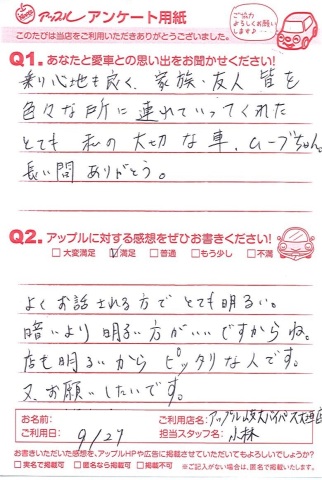 アップル アンケート用紙
ご協力
よろしくお願い
します♪
このたびは当店をご利用いただきありがとうございました。
Q1. あなたと愛車との思い出をお聞かせください!
乗り心地も良く、家族・友人 皆を
色々な所に連れていってくれた
とても 私の 大切 な 車、ムーブちゃん。
長い間 ありがとう。
Q2. アップルに対する感想をぜひお書きください!
□大変満足 ☑満足 □普通 □もう少し □不満
よく お話 される 方で とても 明るい。
暗いより 明るい 方が いい ですからね。
店も 明るいから ピッタリ な人 です。
又、お願いしたいです。
お名前:
ご利用店名:アップル
バイパス大道店
ご利用日: 9/27
担当スタッフ名: 小林
お書きいただいた感想を、アップルHPや広告に掲載させていただいてもよろしいでしょうか?
□実名で掲載可 □匿名なら掲載可 □掲載不可 ※ご記入がない場合は、匿名で掲載いたします。